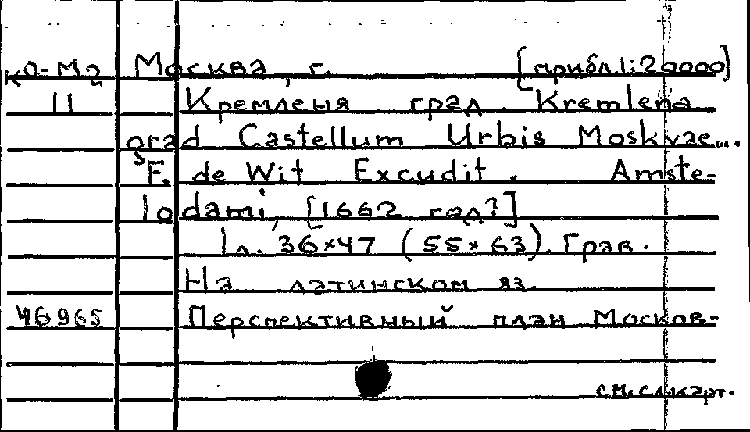 КО-Мо Москва, г. [прибл.1:20000]
11 Кремленыя град. Kremlena
grad Castellum Urbis Moskvae...
F. de Wit Excudit. Amste-
lodami, [1662 год?]
1л. 36×47 (55×63). Грав.
На латинском яз.
46965 Перспективный план Москов-
см.сл.карт.